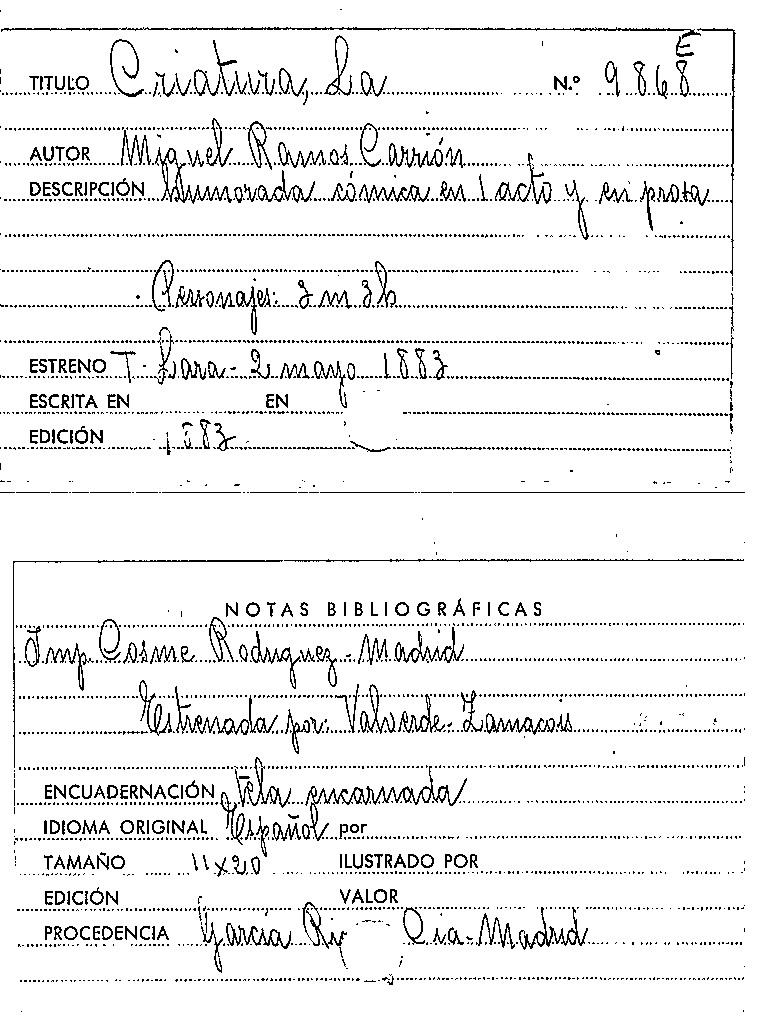 E
TITULO Criatura, La N.º 9868
AUTOR Miguel Ramos Carrión
DESCRIPCIÓN Humorada cómica en 1 acto y en prosa
Personajes: 3 m 3h
ESTRENO T. Lara - 2 mayo 1883
ESCRITA EN EN
EDICIÓN 1883
NOTAS BIBLIOGRÁFICAS
Imp. Cosme Rodriguez - Madrid
Estrenada por: Valverde - Zamacois
ENCUADERNACIÓN Tela encarnada
IDIOMA ORIGINAL Español por
TAMAÑO 11x20 ILUSTRADO POR
EDICIÓN VALOR
PROCEDENCIA García Cia - Madrid